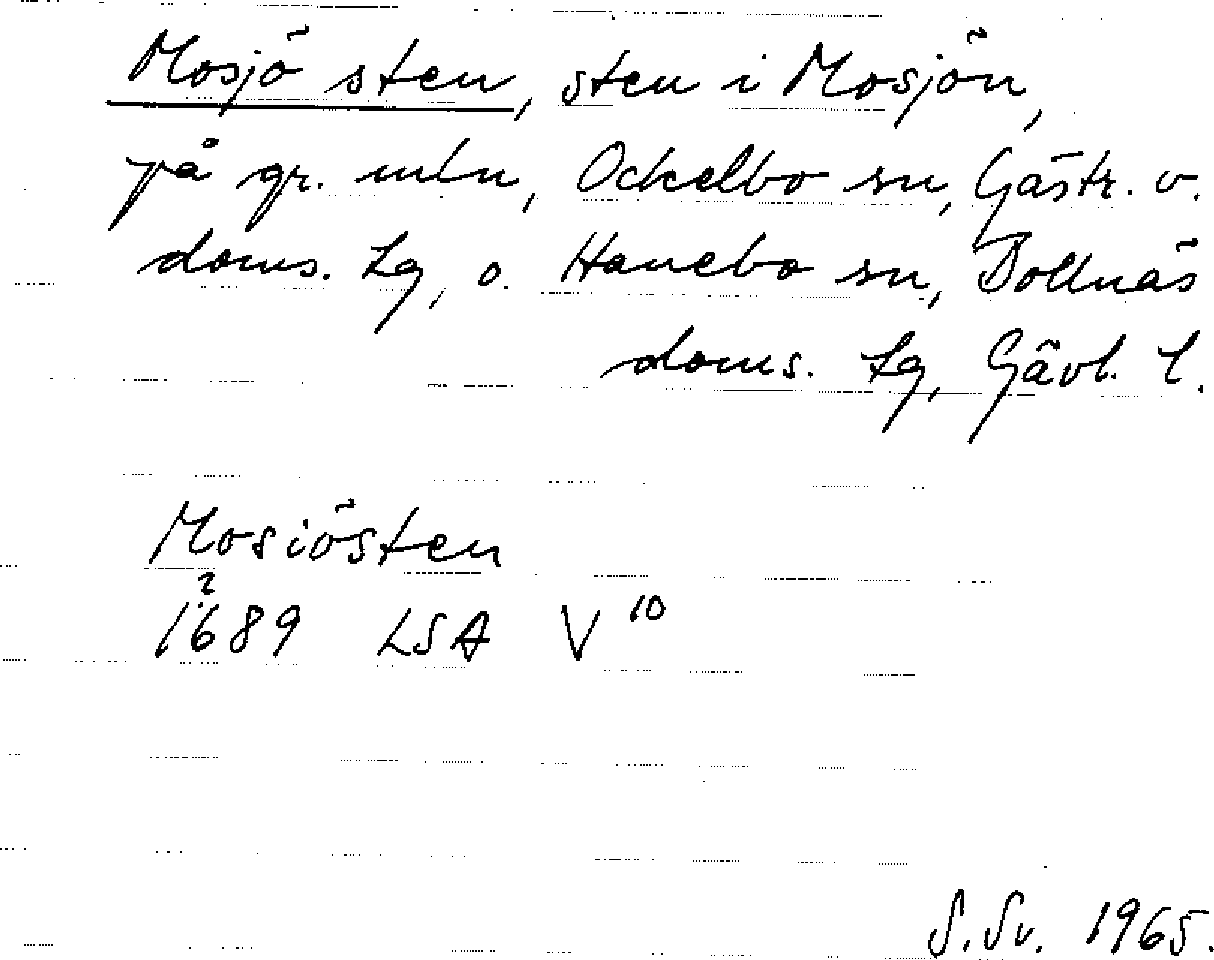 Mosjö sten, sten i Mosjön,
på gr. mln, Ockelbo sn, Gästr. v.
doms. Lg, o. Hanebo sn, Bollnäs
doms. Lg, Gävl. l.
Mosiösten
?
1689 LSA V 10
S. Sv. 1965.